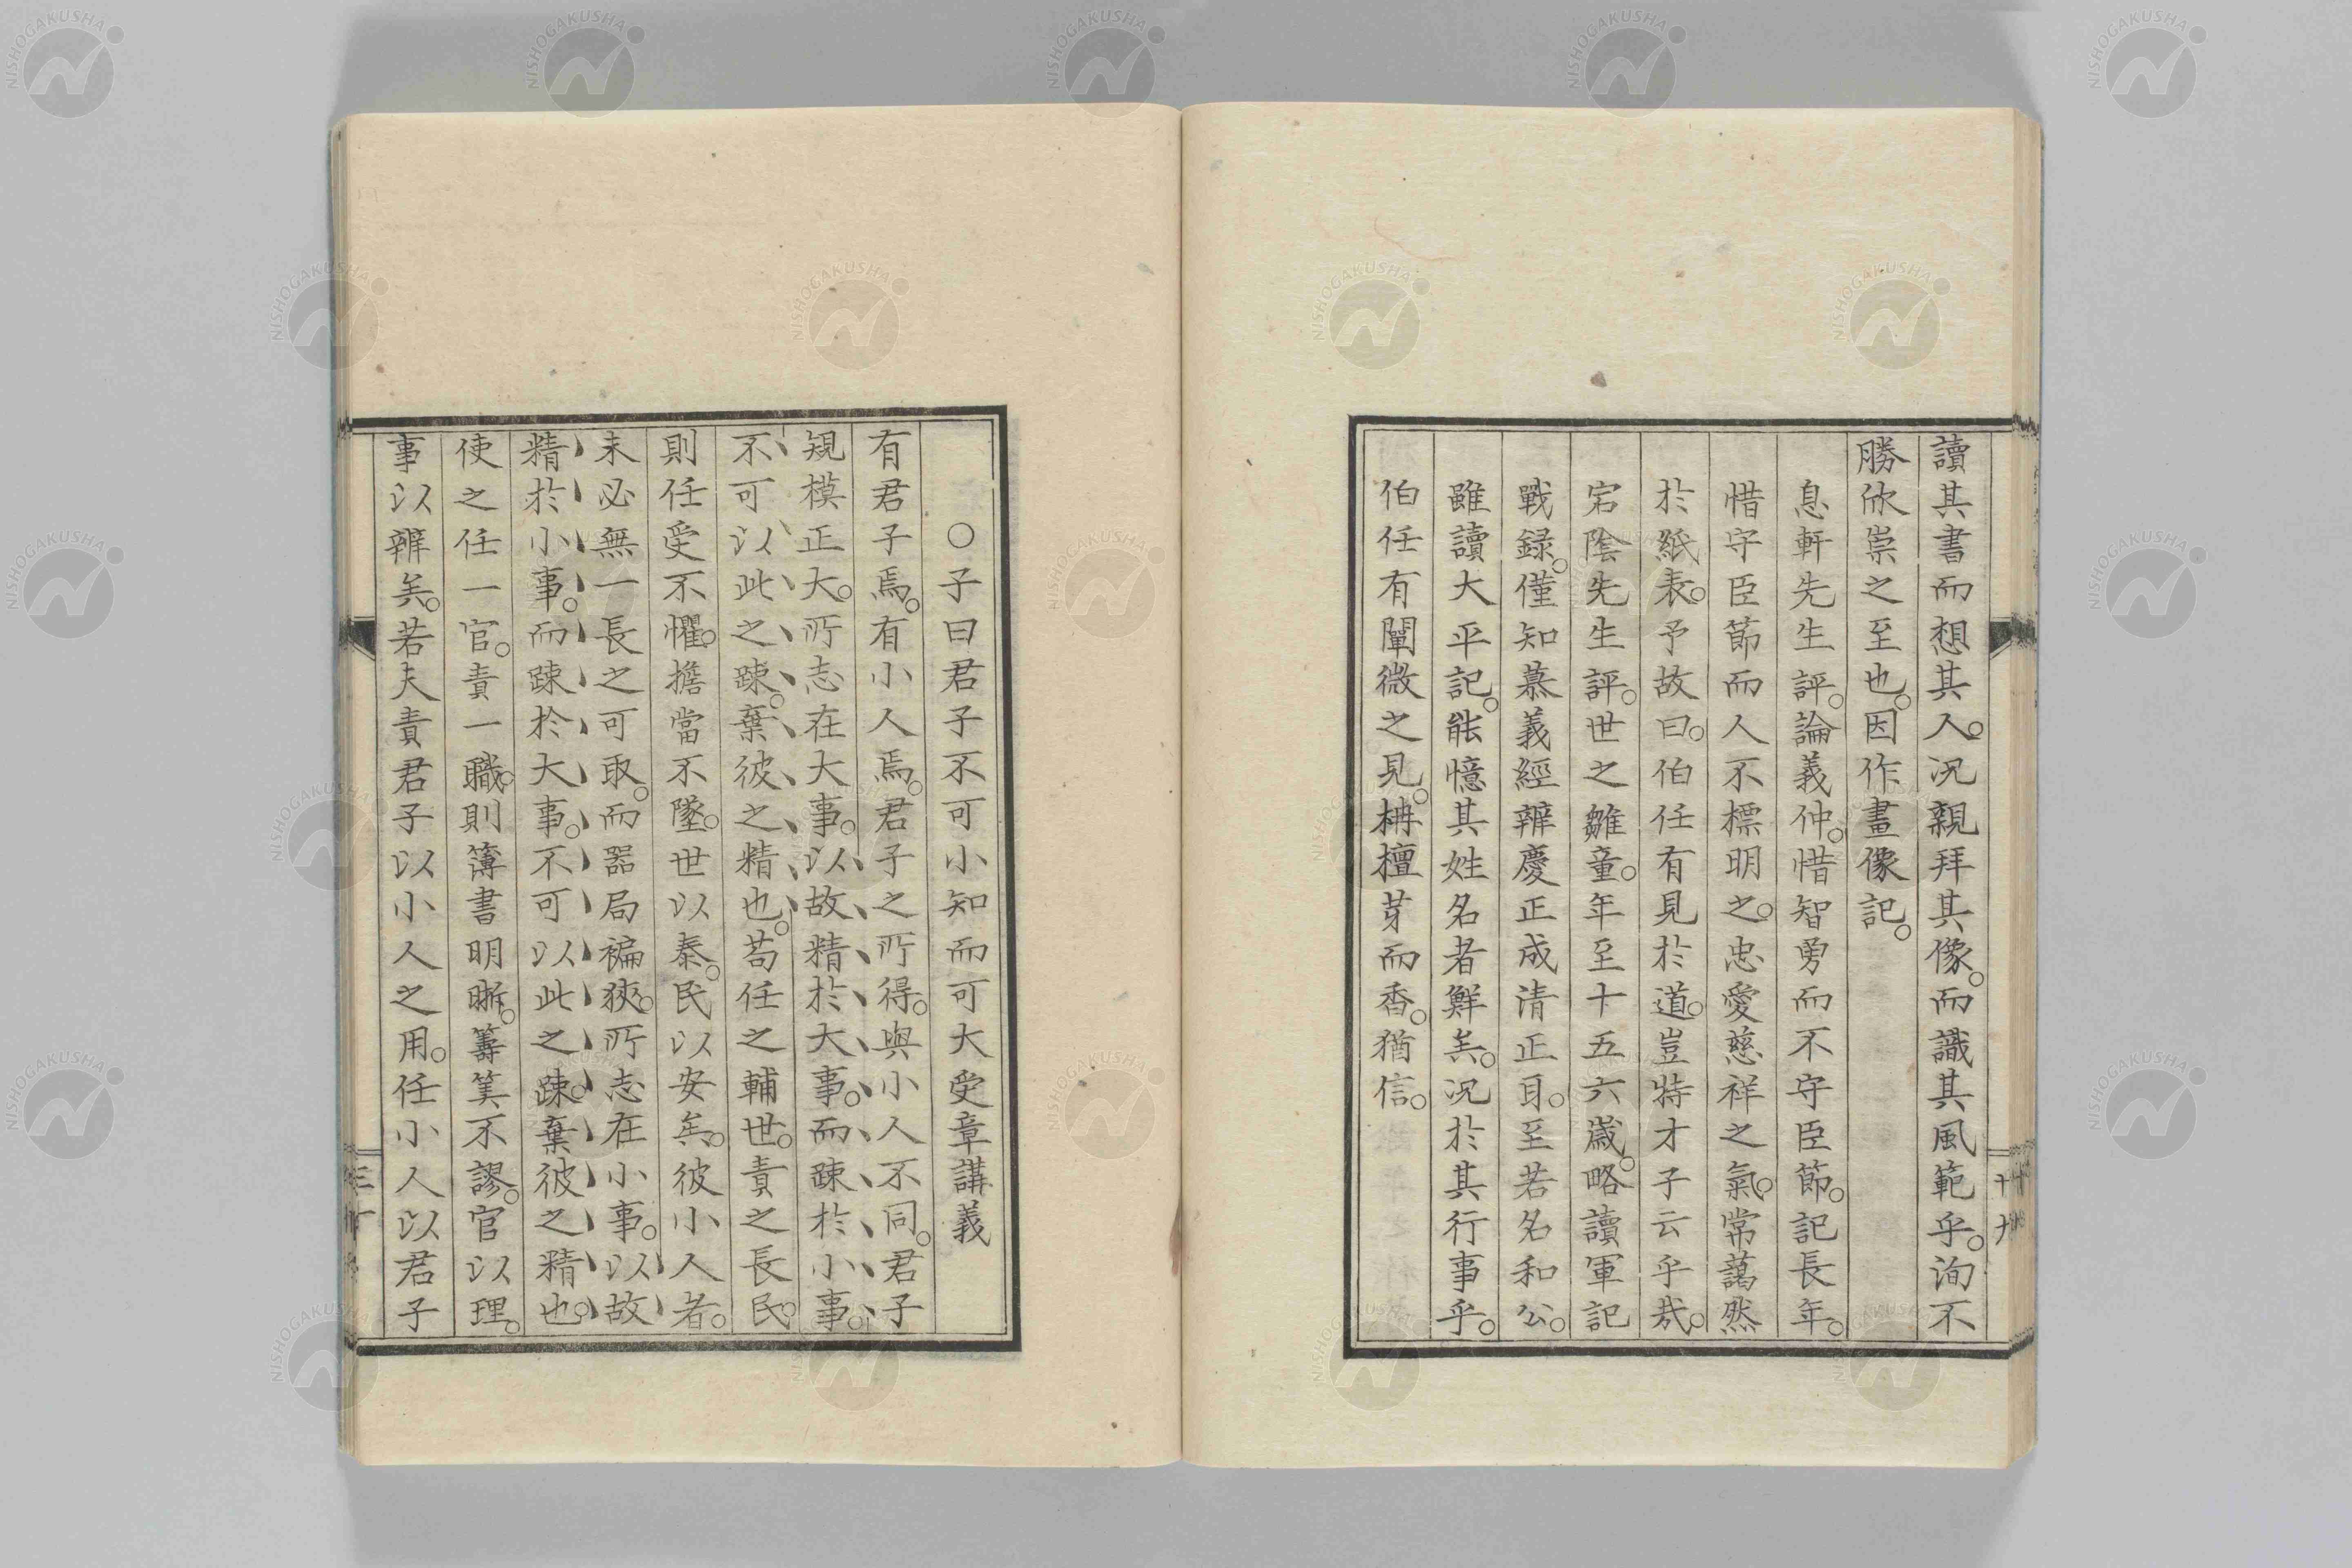 讀其書而想其人。況親拜其像。而識其風範乎。洵不
勝欣崇之至也。因作畫像記。
息軒先生評。論義仲。惜智勇而不守臣節。記長年。
惜守臣節而人不標明之。忠愛慈祥之氣。常藹然
於紙表。予故曰。伯任有見於道。豈特才子云乎哉。
宕陰先生評。世之雛童。年至十五六歲。略讀軍記
戰録。僅知慕義經辨慶正成清正耳。至若名和公。
雖讀大平記。能憶其姓名者鮮矣。況於其行事乎。
伯任有闡微之見。栴檀芽而香。猶信。
十九
○子曰君子不可小知而可大受章講義
有君子焉。有小人焉。君子之所得。與小人不同。君子
規模正大。所志在大事。以故精於大事。而踈於小事。
不可以此之踈。棄彼之精也。苟任之輔世。責之長民。
則任受不懼。擔當不墜。世以泰。民以安矣。彼小人者。
未必無一長之可取。而器局褊狹。所志在小事。以故
精於小事。而踈於大事。不可以此之踈。棄彼之精也。
使之任一官。責一職。則簿書明晰。籌筭不謬。官以理。
事以辨矣。若夫責君子以小人之用。任小人以君子